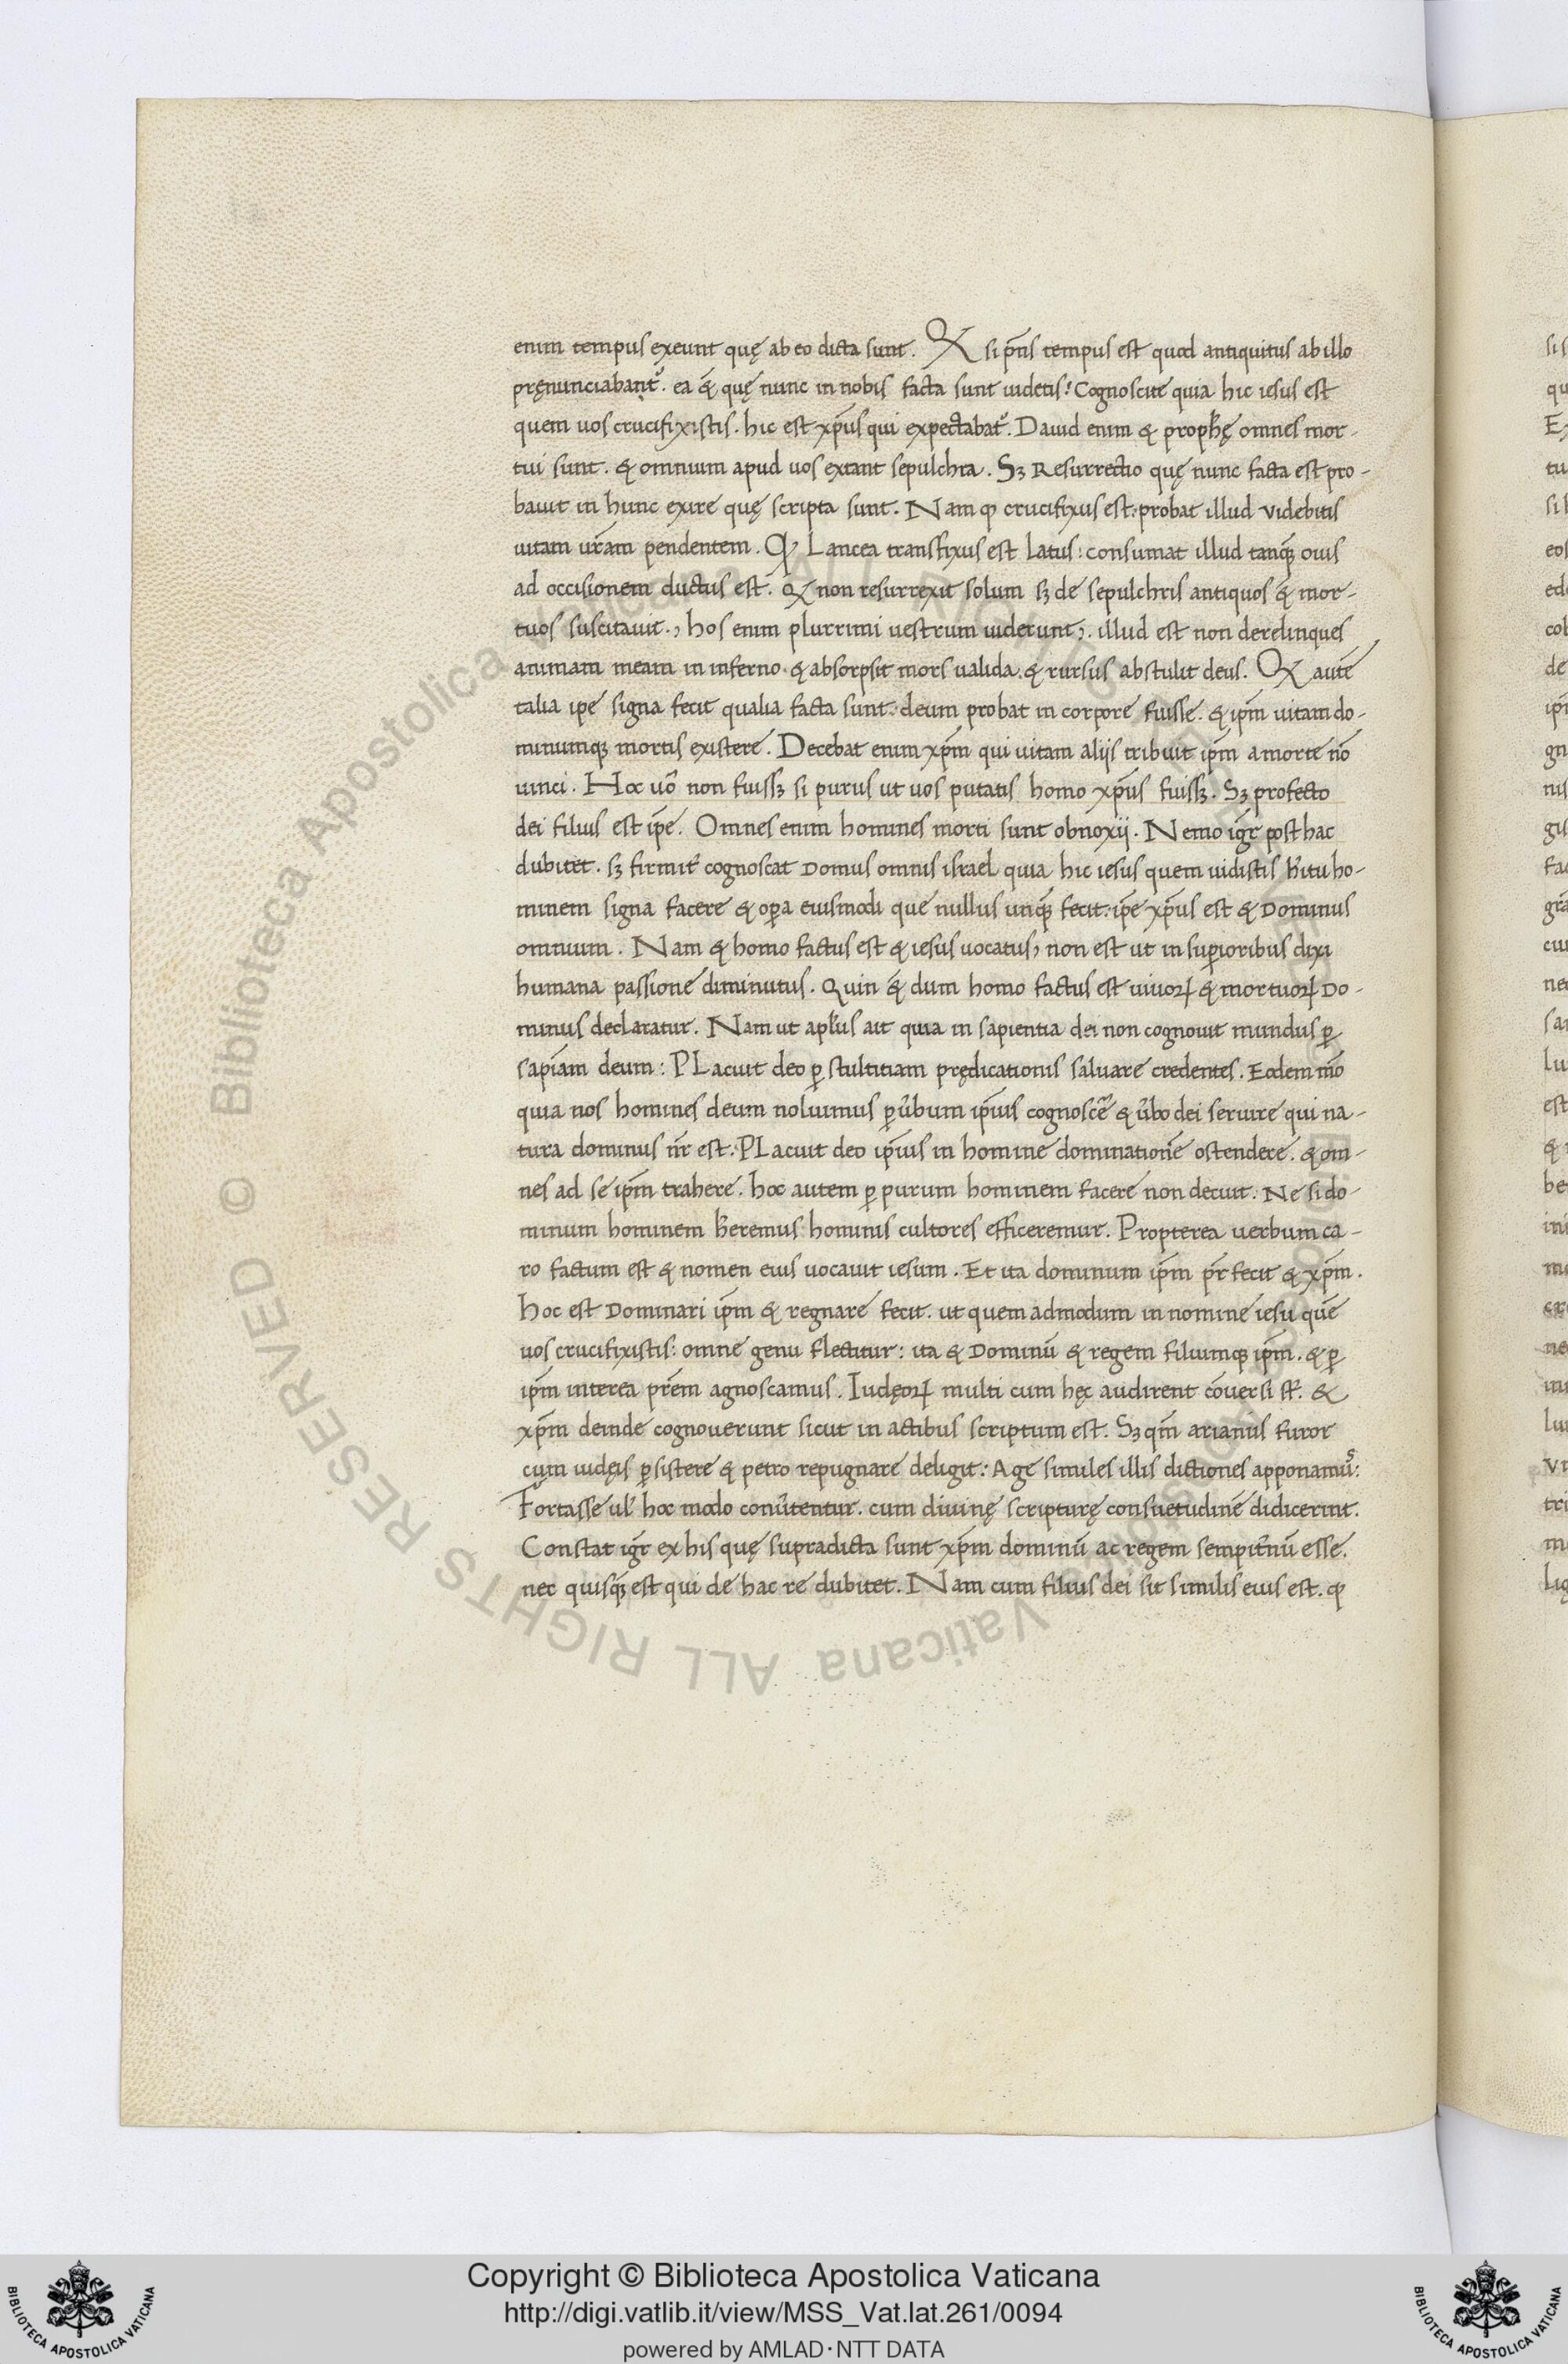 enim tempus exeunt quę ab eo dicta sunt. Qđ si p̄ns tempus est quod antiquitus ab illo
pręnunciabant᷑. ea & quę nunc in nobis facta sunt uidetis: Cognoscite quia hic iesus est
quem uos crucifixistis. hic est xp̄us qui expectabat᷑. Dauid enim & prophę omnes mor-
tui sunt. & omnium apud uos extant sepulchra. Sꝫ Resurrectio quę nunc facta est pro-
bauit in hunc exire quę scripta sunt. Nam ꝙ crucifixus est: probat illud videbitis
uitam ur̄am pendentem. Ꝙ Lancea transfixus est Latus: consumat illud tanqꝫ ouis
ad occisionem ductus est. Qđ non resurrexit solum sꝫ de sepulchris antiquos & mor-
tuos suscitauit., hos enim plurrimi uestrum uiderunt,. illud est non derelinques
animam meam in inferno. & absorpsit mors ualida. & rursus abstulit deus. Qđ autē
talia ip̄e signa fecit qualia facta sunt: deum probat in corpore fuisse. & ip̄m uitam do-
minumqꝫ mortis existere. Decebat enim xp̄m qui uitam alijs tribuit ip̄m a morte nō
uinci. Hoc uō non fuissꝫ si purus ut uos putatis homo xp̄us fuissꝫ. Sꝫ profecto
dei filius est ip̄e. Omnes enim homines morti sunt obnoxij. Nemo igr̄ post hac
dubitet. sꝫ firmit᷑ cognoscat Domus omnis israel quia hic iesus quem uidistis h̄itu ho-
minem signa facere & oꝑa eiusmodi que nullus unqꝫ fecit: ip̄e xp̄us est & Dominus
omnium. Nam & homo factus est & iesus uocatus, non est ut in suꝑioribus dixi
humana passione diminutus. Quin & dum homo factus est uiuoꝝ & mortuoꝝ Do-
minus declaratur. Nam ut apl̄us ait quia in sapientia dei non cognouit mundus ꝑ
sapiām deum: PLacuit deo ꝑ stultitiam prędicationis saluare credentes. Eodem mō
quia nos homines deum noluimus ꝑ ūbum ip̄ius cognoscē & ūbo dei seruire qui na-
tura dominus nr̄ est. PLacuit deo ip̄ius in homine dominationē ostendere. & om-
nes ad se ip̄m trahere. hoc autem ꝑ purum hominem facere non decuit. Ne si do-
minum hominem h̄eremus hominis cultores efficeremur. Propterea uerbum ca-
ro factum est & nomen eius uocauit iesum. Et ita dominum ip̄m pr̄ fecit & xp̄m.
hoc est Dominari ip̄m & regnare fecit. ut quem admodum in nomine iesu quē
uos crucifixistis: omne genu flectitur: ita & Dominū & regem filiumqꝫ ip̄m. & ꝑ
ip̄m interea pr̄em agnoscamus. Iudęoꝝ multi cum hęc audirent cōuersi st̄. &
xp̄m deinde cognouerunt sicut in actibus scriptum est. Sꝫ qm̄ arianus furor
cum iudęis ꝑsistere & petro repugnare deligit: Age similes illis dictiones apponamuˢ:
Fortasse ul̄ hoc modo conūtentur. cum diuinę scripturę consuetudinē didicerint.
Constat igr̄ ex his quę supradicta sunt xp̄m dominū ac regem sempit̄nū esse.
nec quisqꝫ est qui de hac re dubitet. Nam cum filius dei sit similis eius est. ꝙ
Copyright © Biblioteca Apostolica Vaticana
http://digi.vatlib.it/view/MSS_Vat.lat.261/0094
powered by AMLAD·NTT DATA